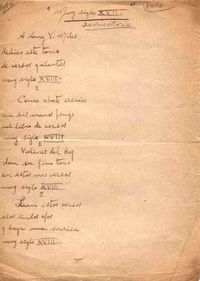 "Muy siglo XVIII"
Dedicatoria
A Amy V. Miles
dedico este tomo
de versos galantes
muy siglo XVIII
Como abate
en sus manos pongo
mi libro de versos
muy siglo XVIII
Violines del Rey
dan su fino tono
en estos mis versos
muy siglo XVIII
Lean estos versos
esos lindos ojos
y haya una sonrisa
muy siglo XVIII